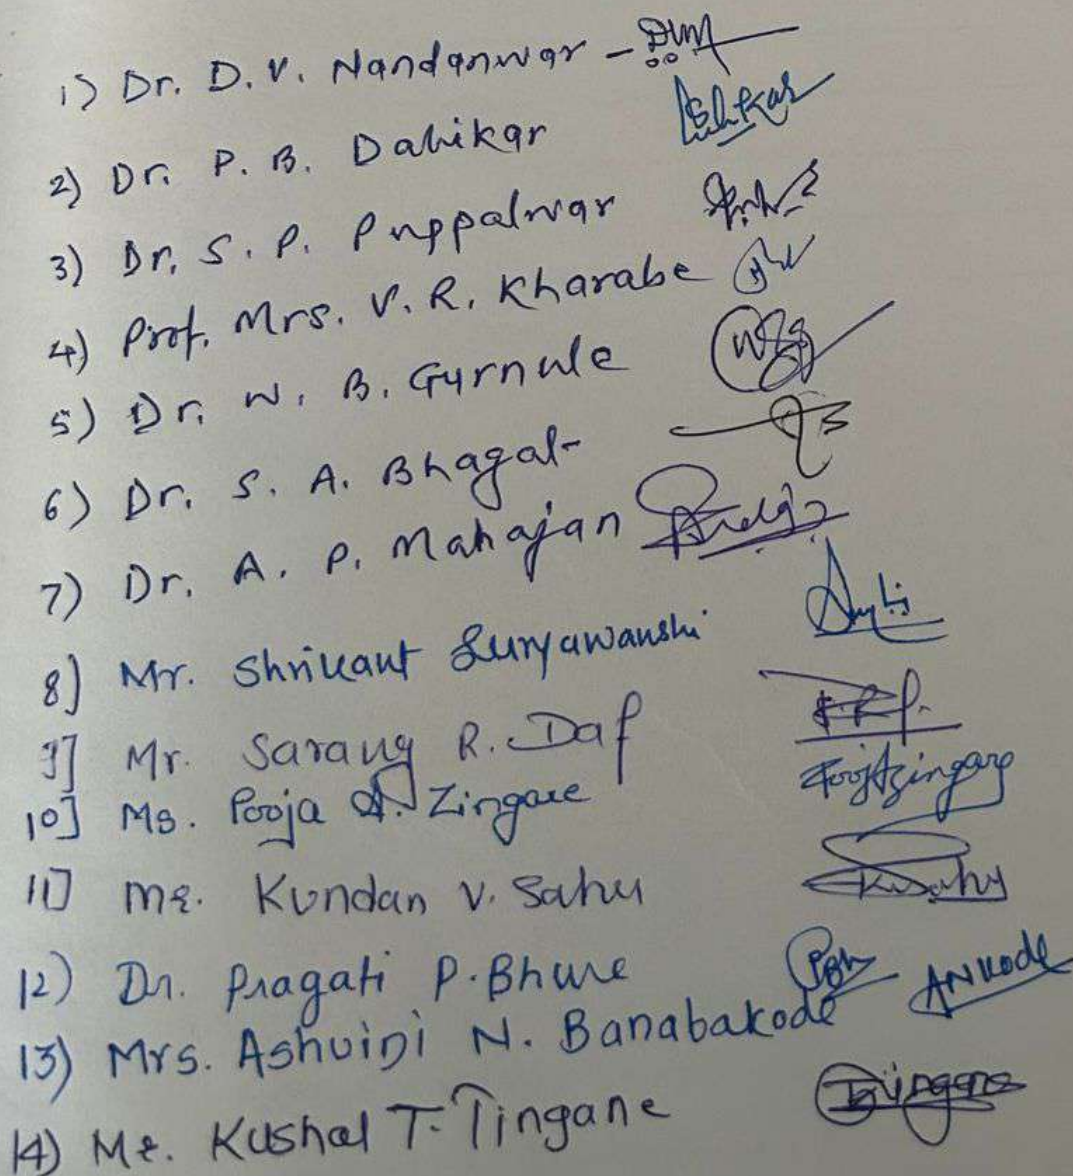 1) Dr. D. V. Nandanwar -
2) Dr. P. B. Dahikar
3) Dr. S. P. Puppalwar
4) Prof. Mrs. V. R. Kharabe
5) Dr. W. B. Gurnule
6) Dr. S. A. Bhagat
7) Dr. A. P. Mahajan
8) Mr. Shrikant Suryawanshi
9] Mr. Sarang R. Daf
10] Ms. Pooja A. Zingare
11] Mr. Kundan V. Sahu
12) Dr. Pragati P. Bhure
13) Mrs. Ashvini N. Banabakode ANKode
14) Mr. Kushal T. Tingane